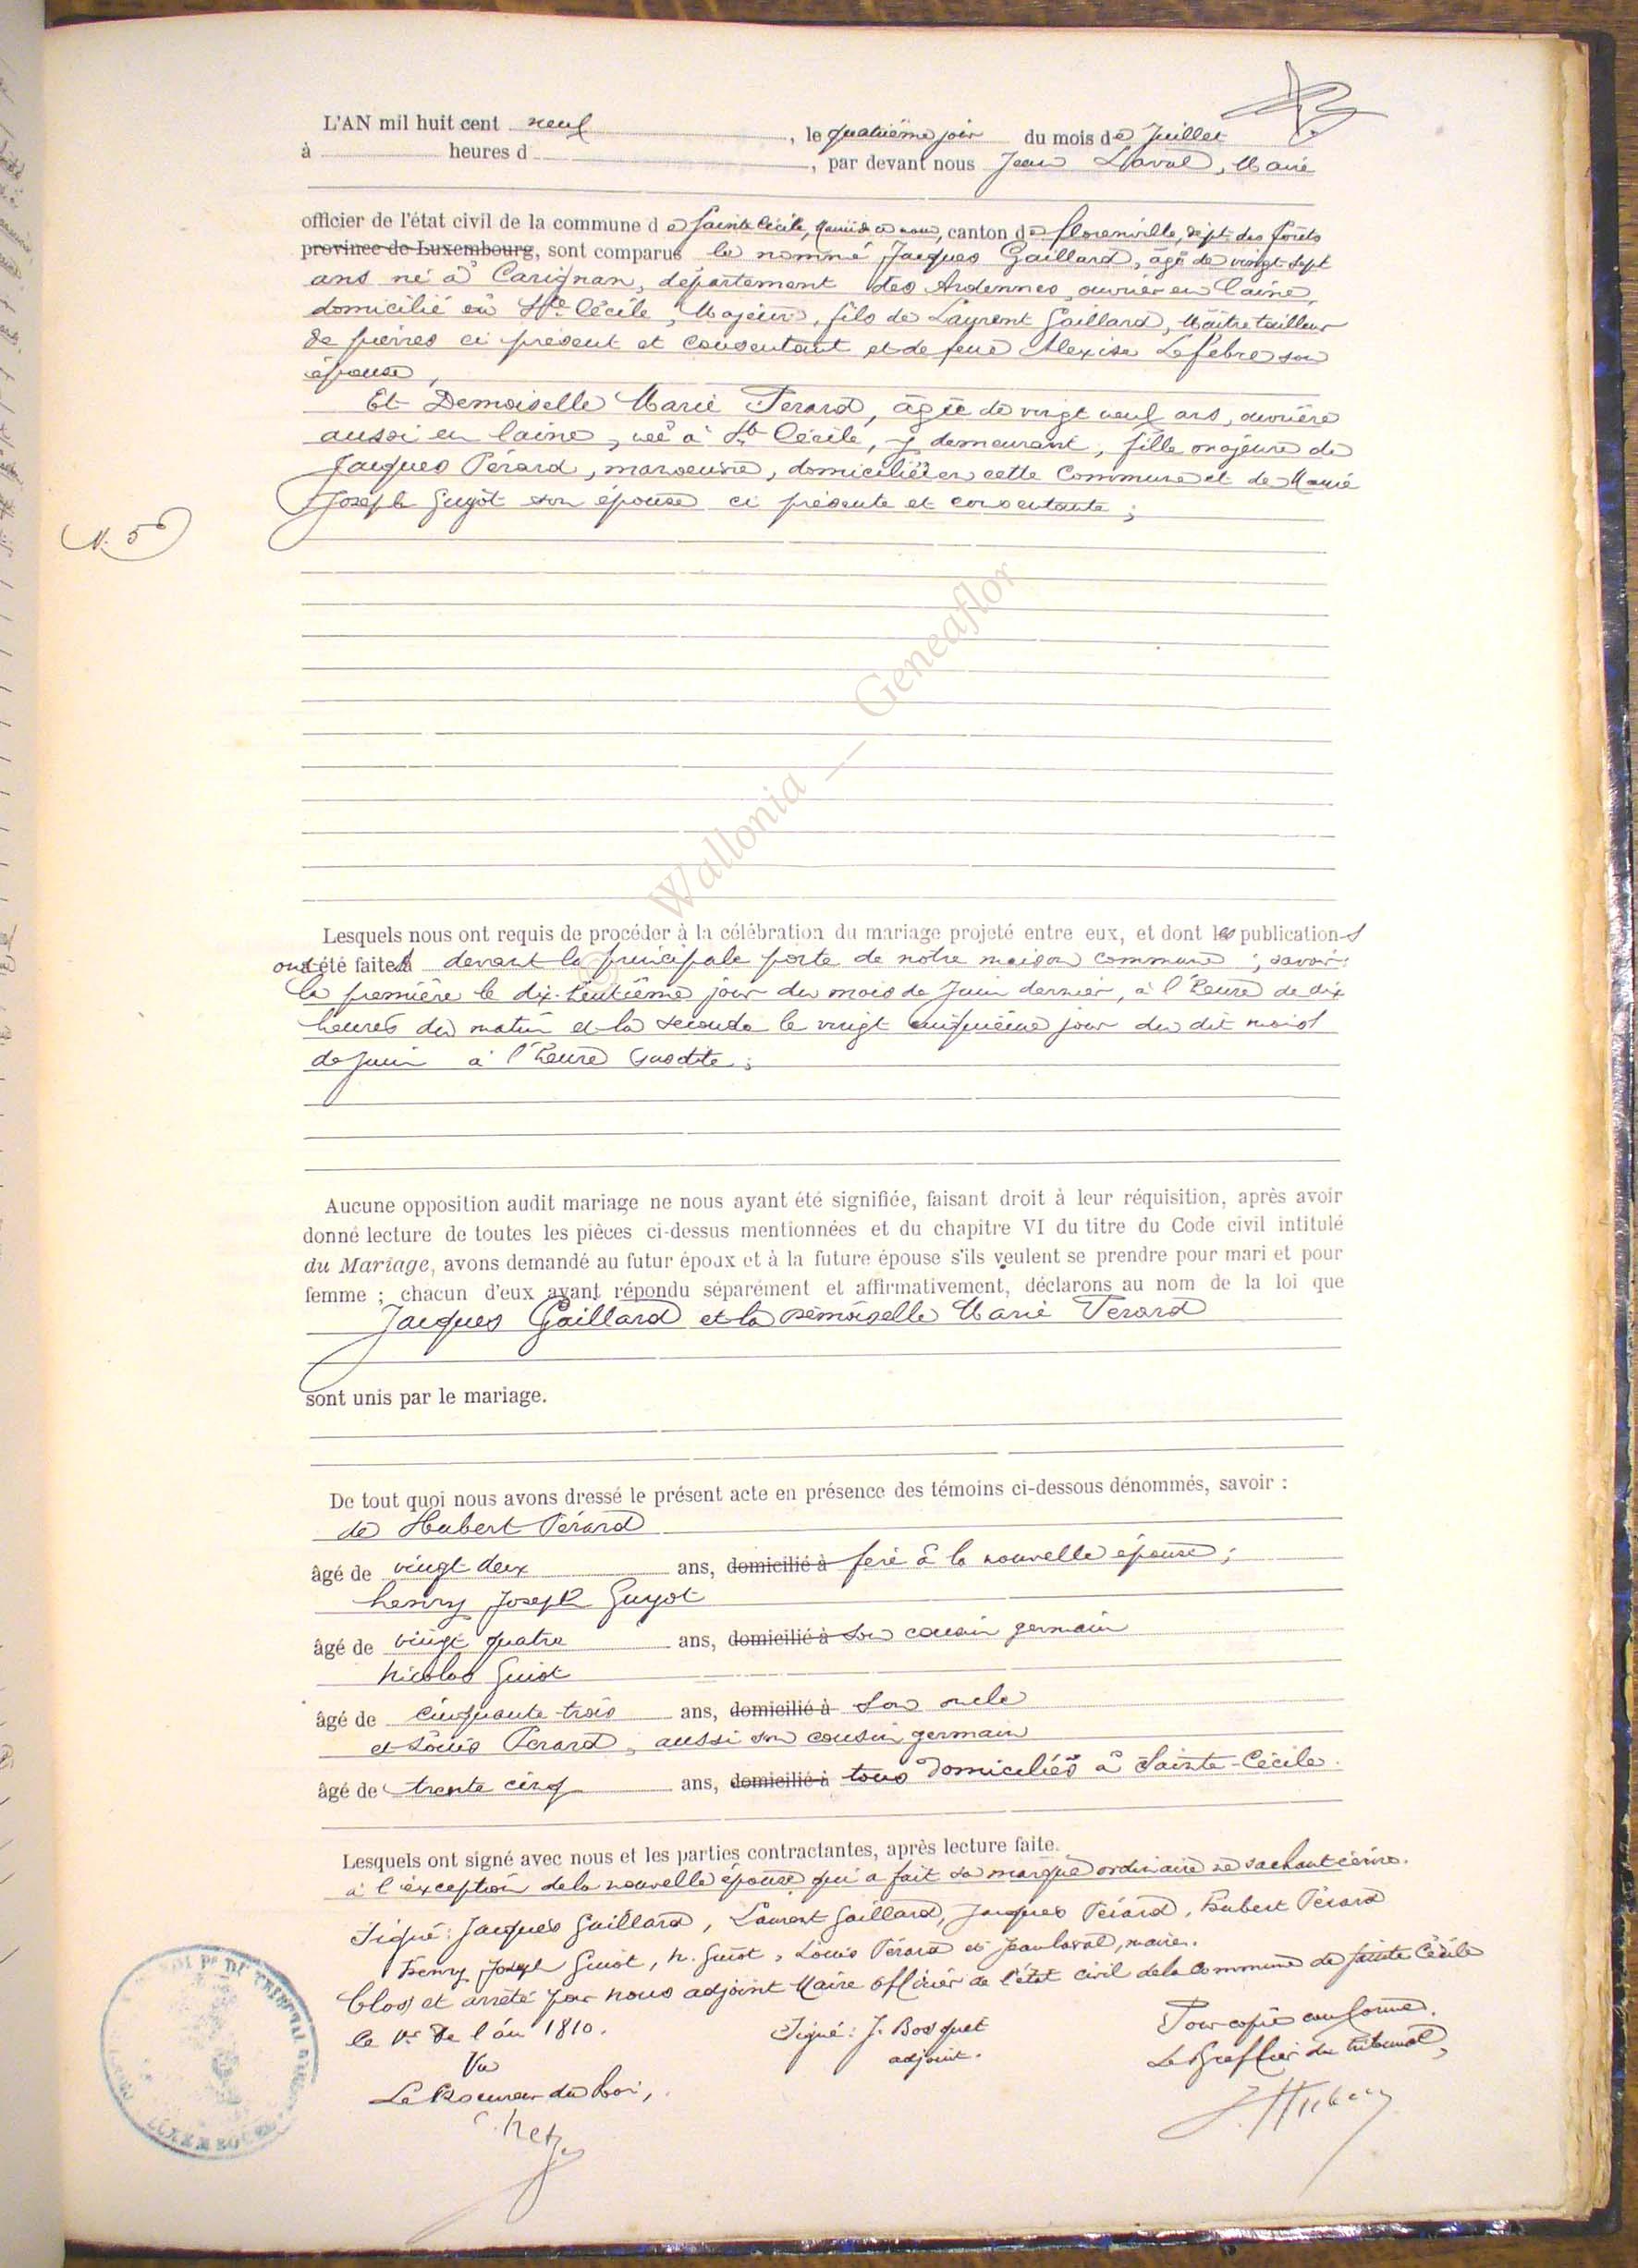 L'AN mil huit cent neuf, le quatrième jour du mois de Juillet
à heures d, par devant nous Jean Laval, Maire
officier de l'état civil de la commune de Sainte Cécile, Mairie de ce nom, canton de florenville, dépt. des forêts
province de Luxembourg, sont comparus le nommé Jacques Gaillard, âgé de vingt sept
ans né à Carignan, département des Ardennes, ouvrier en laine,
domicilié en Ste Cécile, Majeur, fils de Laurent Gaillard, Maître tailleur
de pierres ci présent et consentant et de feue Alexise Lefebre son
épouse,
Et Demoiselle Marie Perard, âgée de vingt neuf ans, ouvrière
aussi en laine, née à Ste Cécile, y demeurant, fille majeure de
Jacques Pérard, manoeuvre, domicilié en cette Commune et de Marie
Joseph Guyot son épouse ci présente et consentante;
N. 5
Wallonia — Geneaflor
Lesquels nous ont requis de procéder à la célébration du mariage projeté entre eux, et dont les publications
ont été faites devant la principale porte de notre maison commune; savoir:
la première le dix-huitième jour du mois de Juin dernier, à l'heure de dix
heures du matin et la seconde le vingt cinquième jour du dit mois
de juin à l'heure susdite;
Aucune opposition audit mariage ne nous ayant été signifiée, faisant droit à leur réquisition, après avoir
donné lecture de toutes les pièces ci-dessus mentionnées et du chapitre VI du titre du Code civil intitulé
du Mariage, avons demandé au futur époux et à la future épouse s'ils veulent se prendre pour mari et pour
femme ; chacun d'eux ayant répondu séparément et affirmativement, déclarons au nom de la loi que
Jacques Gaillard et la demoiselle Marie Perard
sont unis par le mariage.
De tout quoi nous avons dressé le présent acte en présence des témoins ci-dessous dénommés, savoir :
de Hubert Pérard
âgé de vingt deux ans, domicilié à frère à la nouvelle épouse;
henry Joseph Guyot
âgé de vingt quatre ans, domicilié à son cousin germain
Nicolas Guiot
âgé de cinquante-trois ans, domicilié à son oncle
et Louis Perard, aussi son cousin germain
âgé de trente cinq ans, domicilié à tous domiciliés à Sainte-Cécile.
Lesquels ont signé avec nous et les parties contractantes, après lecture faite.
à l'exception de la nouvelle épouse qui a fait sa marque ordinaire ne sachant écrire.
Signé: Jacques Gaillard, Laurent Gaillard, Jacques Pérard, Hubert Pérard
henry Joseph Guiot, N. Guiot, Louis Pérard et Jean Laval, maire.
Clos et arrêté par nous adjoint Maire officier de l'état civil de la Commune de Sainte Cécile
le 1er de l'an 1810.
Signé: J. Bosquet
adjoint.
Pour copie conforme.
Le Greffier du tribunal,
Vu
Le Procureur du Roi,